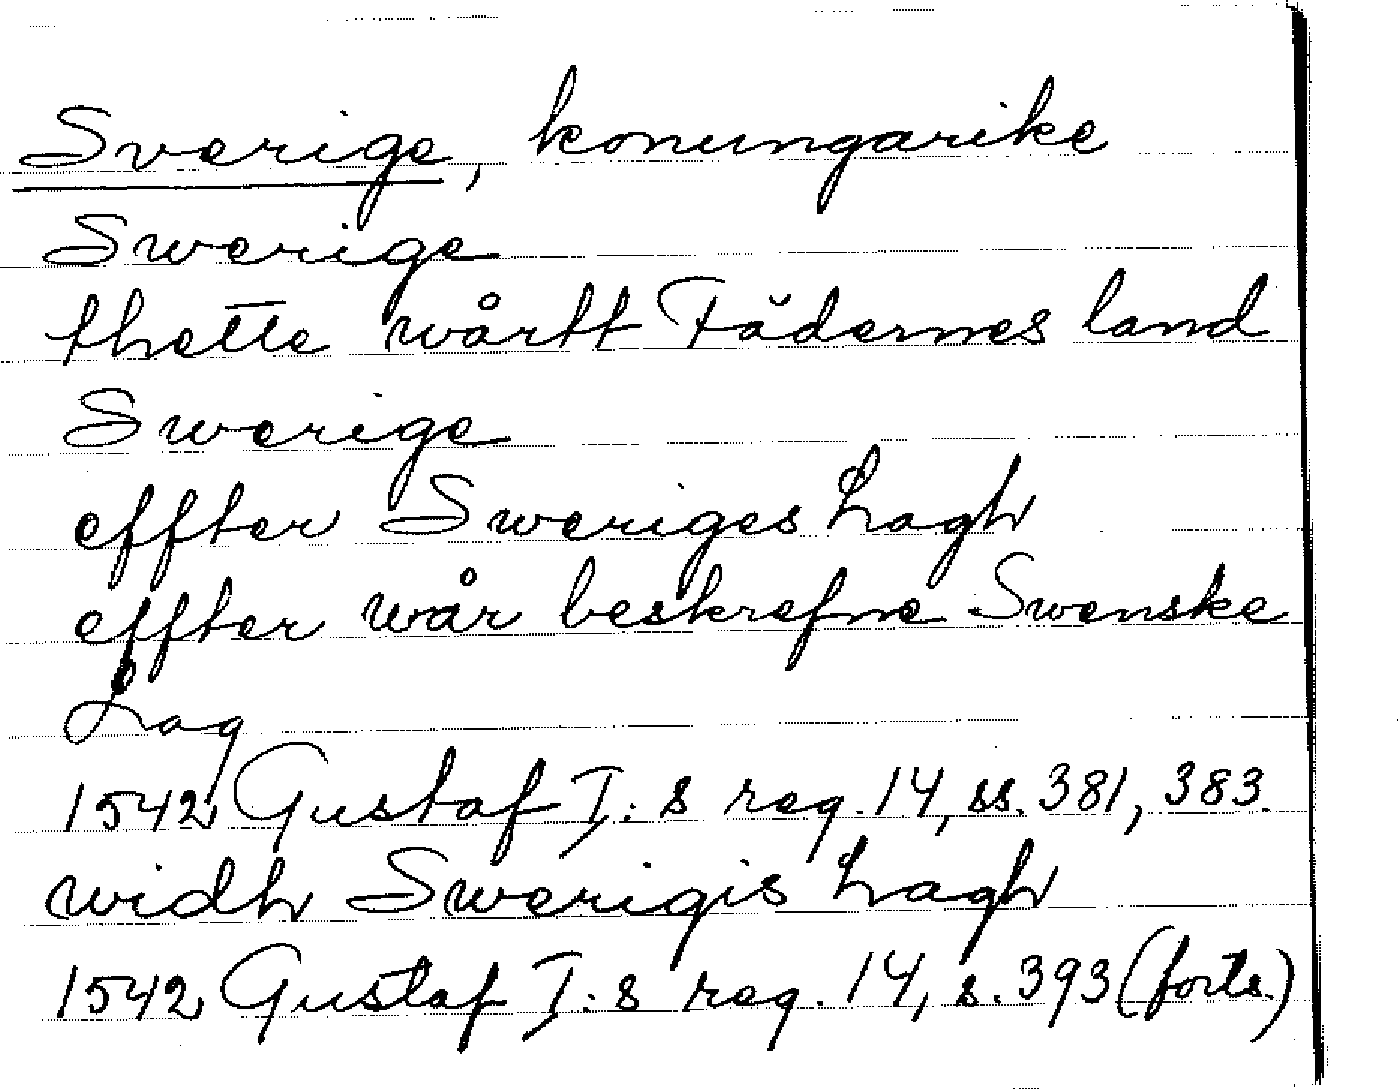 Sverige, konungarike
Swerige
thette wårtt Fädernes land
Swerige
effter Sweriges Lagh
effter wår beskrefne Swenske
Lag
1542 Gustaf I:s reg. 14, ss. 381, 383.
widh Swerigis Lagh
1542 Gustaf I:s reg. 14, s. 393 (forts.)